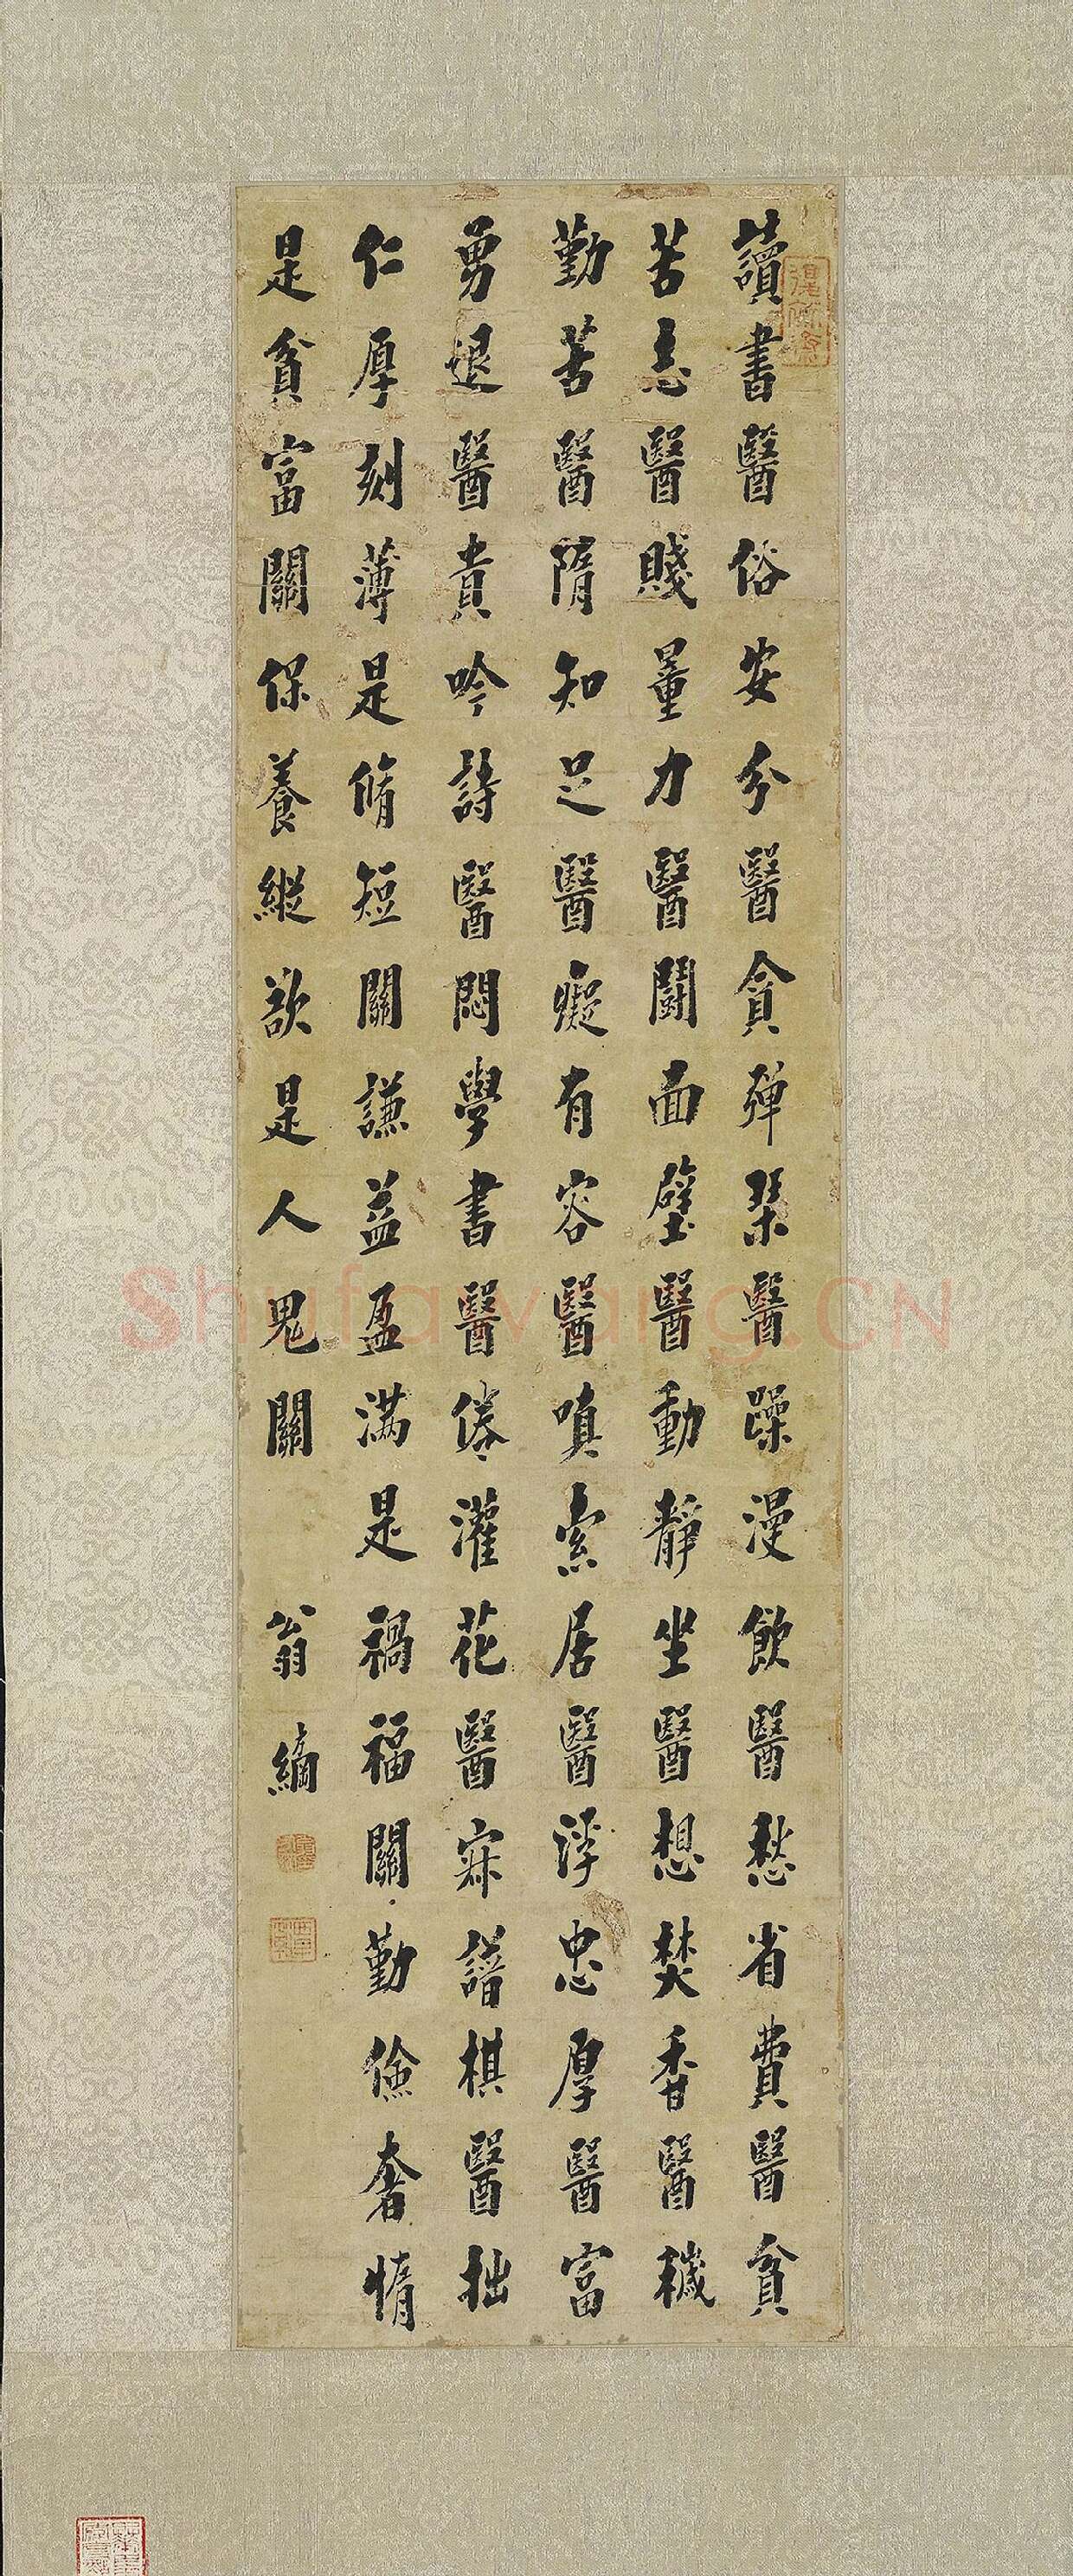 讀書醫俗安分醫貪彈琹醫躁漫飲醫愁省費醫貧
苦志醫賤量力醫鬪面壁醫動靜坐醫想焚香醫穢
勤苦醫隋知足醫癡有容醫嗔索居醫浮忠厚醫富
勇退醫貴吟詩醫悶學書醫倦灌花醫寂譜棋醫拙
仁厚刻薄是脩短關謙益盈滿是禍福關勤儉奢惰
是貧富關保養縱欲是人鬼關
翁
Shufawang.CN